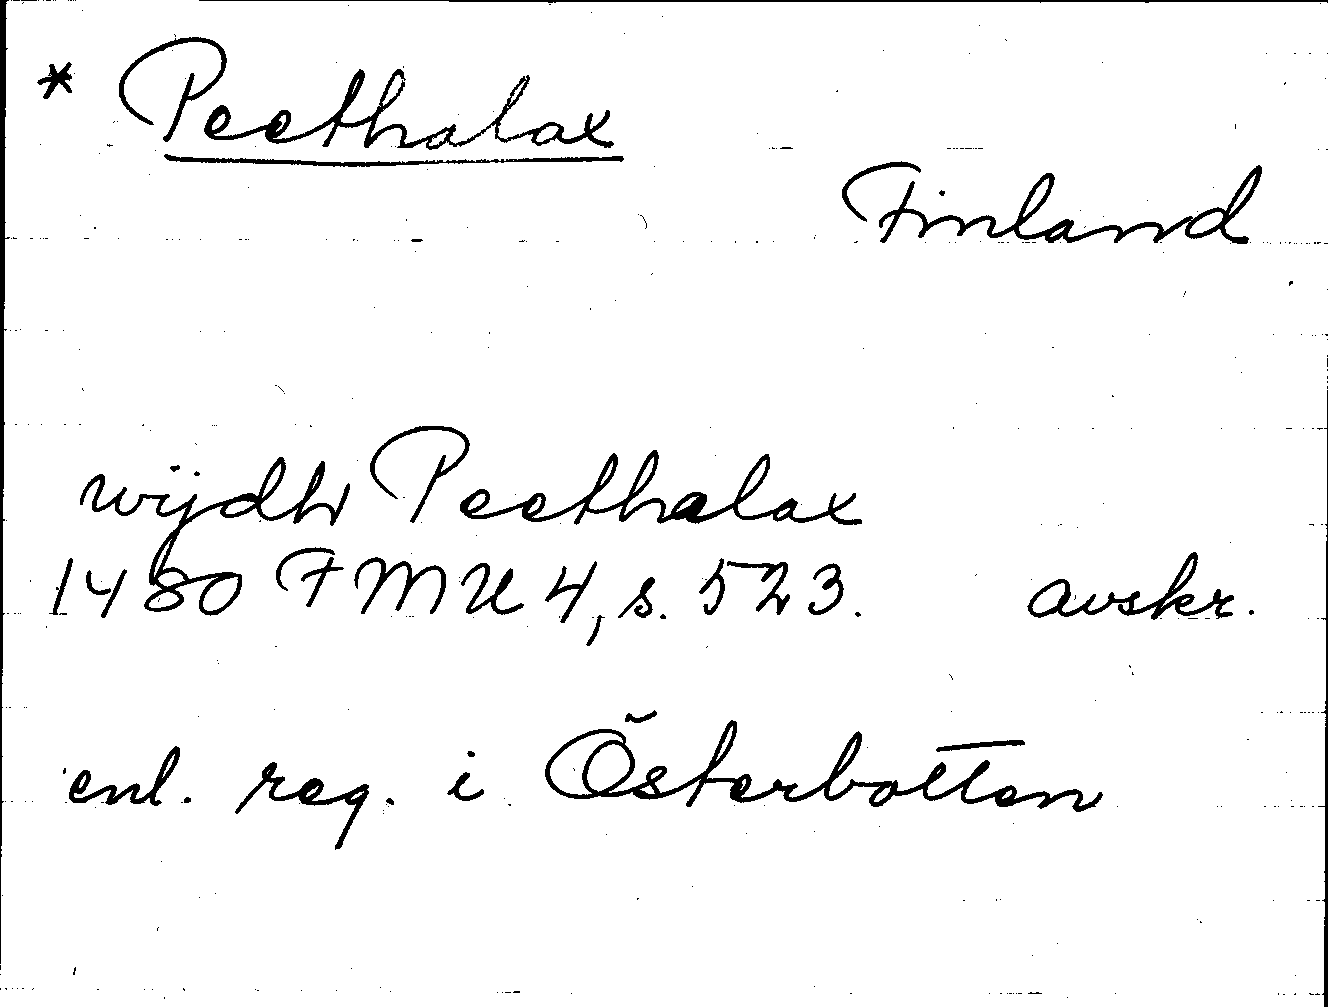 * Peethalax
Finland
wijdh Peethalax
1480 FMU 4, s. 523. avskr.
enl. reg. i Österbotten